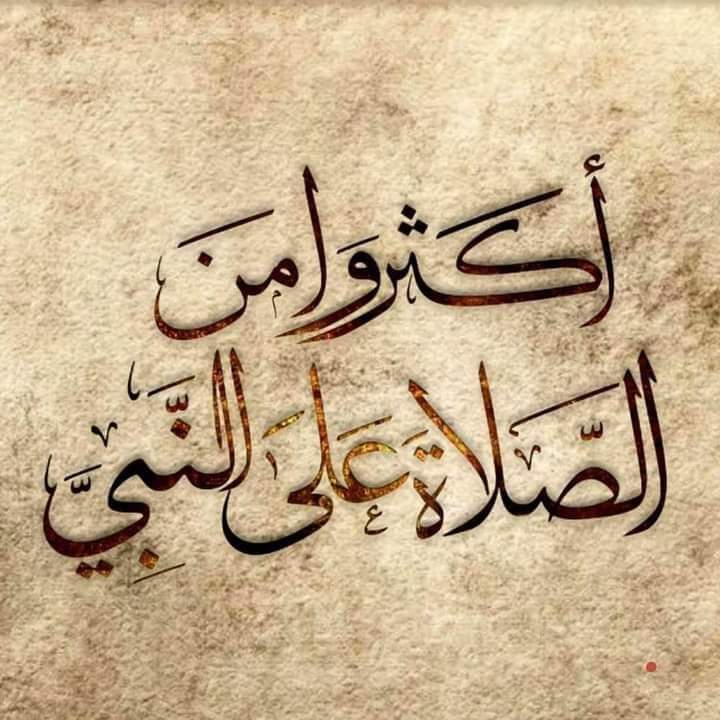 أكثروا من
الصَّلاةَ عَلى النَّبيِّ